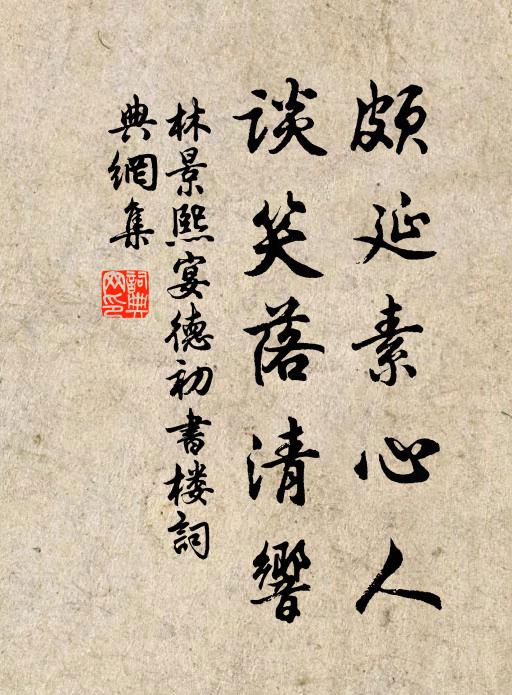 頗延素心人
談笑落清響
林景熙宴德初書楼詞
典網集
詞典網印